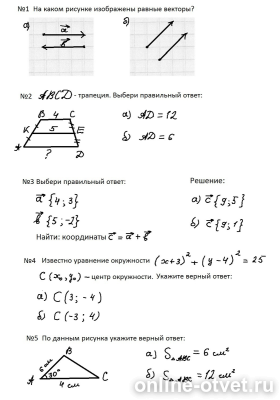 №1 На каком рисунке изображены равные векторы?
а)
б)
a
b
№2 ABCD - трапеция. Выбери правильный ответ:
B 4 C
K 5 E
A ? D
а) AD = 12
б) AD = 6
№3 Выбери правильный ответ:
Решение:
a {4; 3}
а) c {9; 5}
b {5; -2}
б) c {9; 1}
Найти: координаты c = a + b
№4 Известно уравнение окружности (x+3)² + (y-4)² = 25
C (x₀, y₀) – центр окружности. Укажите верный ответ:
а) C (3; -4)
б) C (-3; 4)
№5 По данным рисунка укажите верный ответ:
B
6 см
30°
A 4 см C
а) S△ABC = 6 см²
б) S△ABC = 12 см²
onlime-otvet.ru